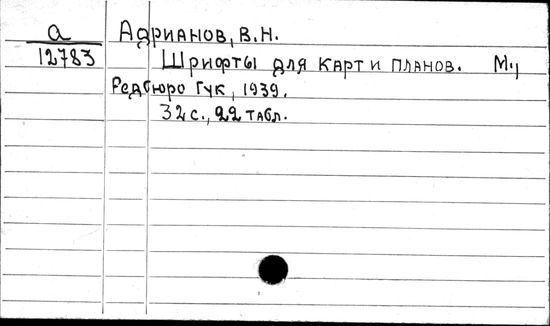 а
12783
Адрианов, В.Н.
Шрифты для карт и планов. М.,
Редбюро Гук, 1939.
32 с., 22 табл.